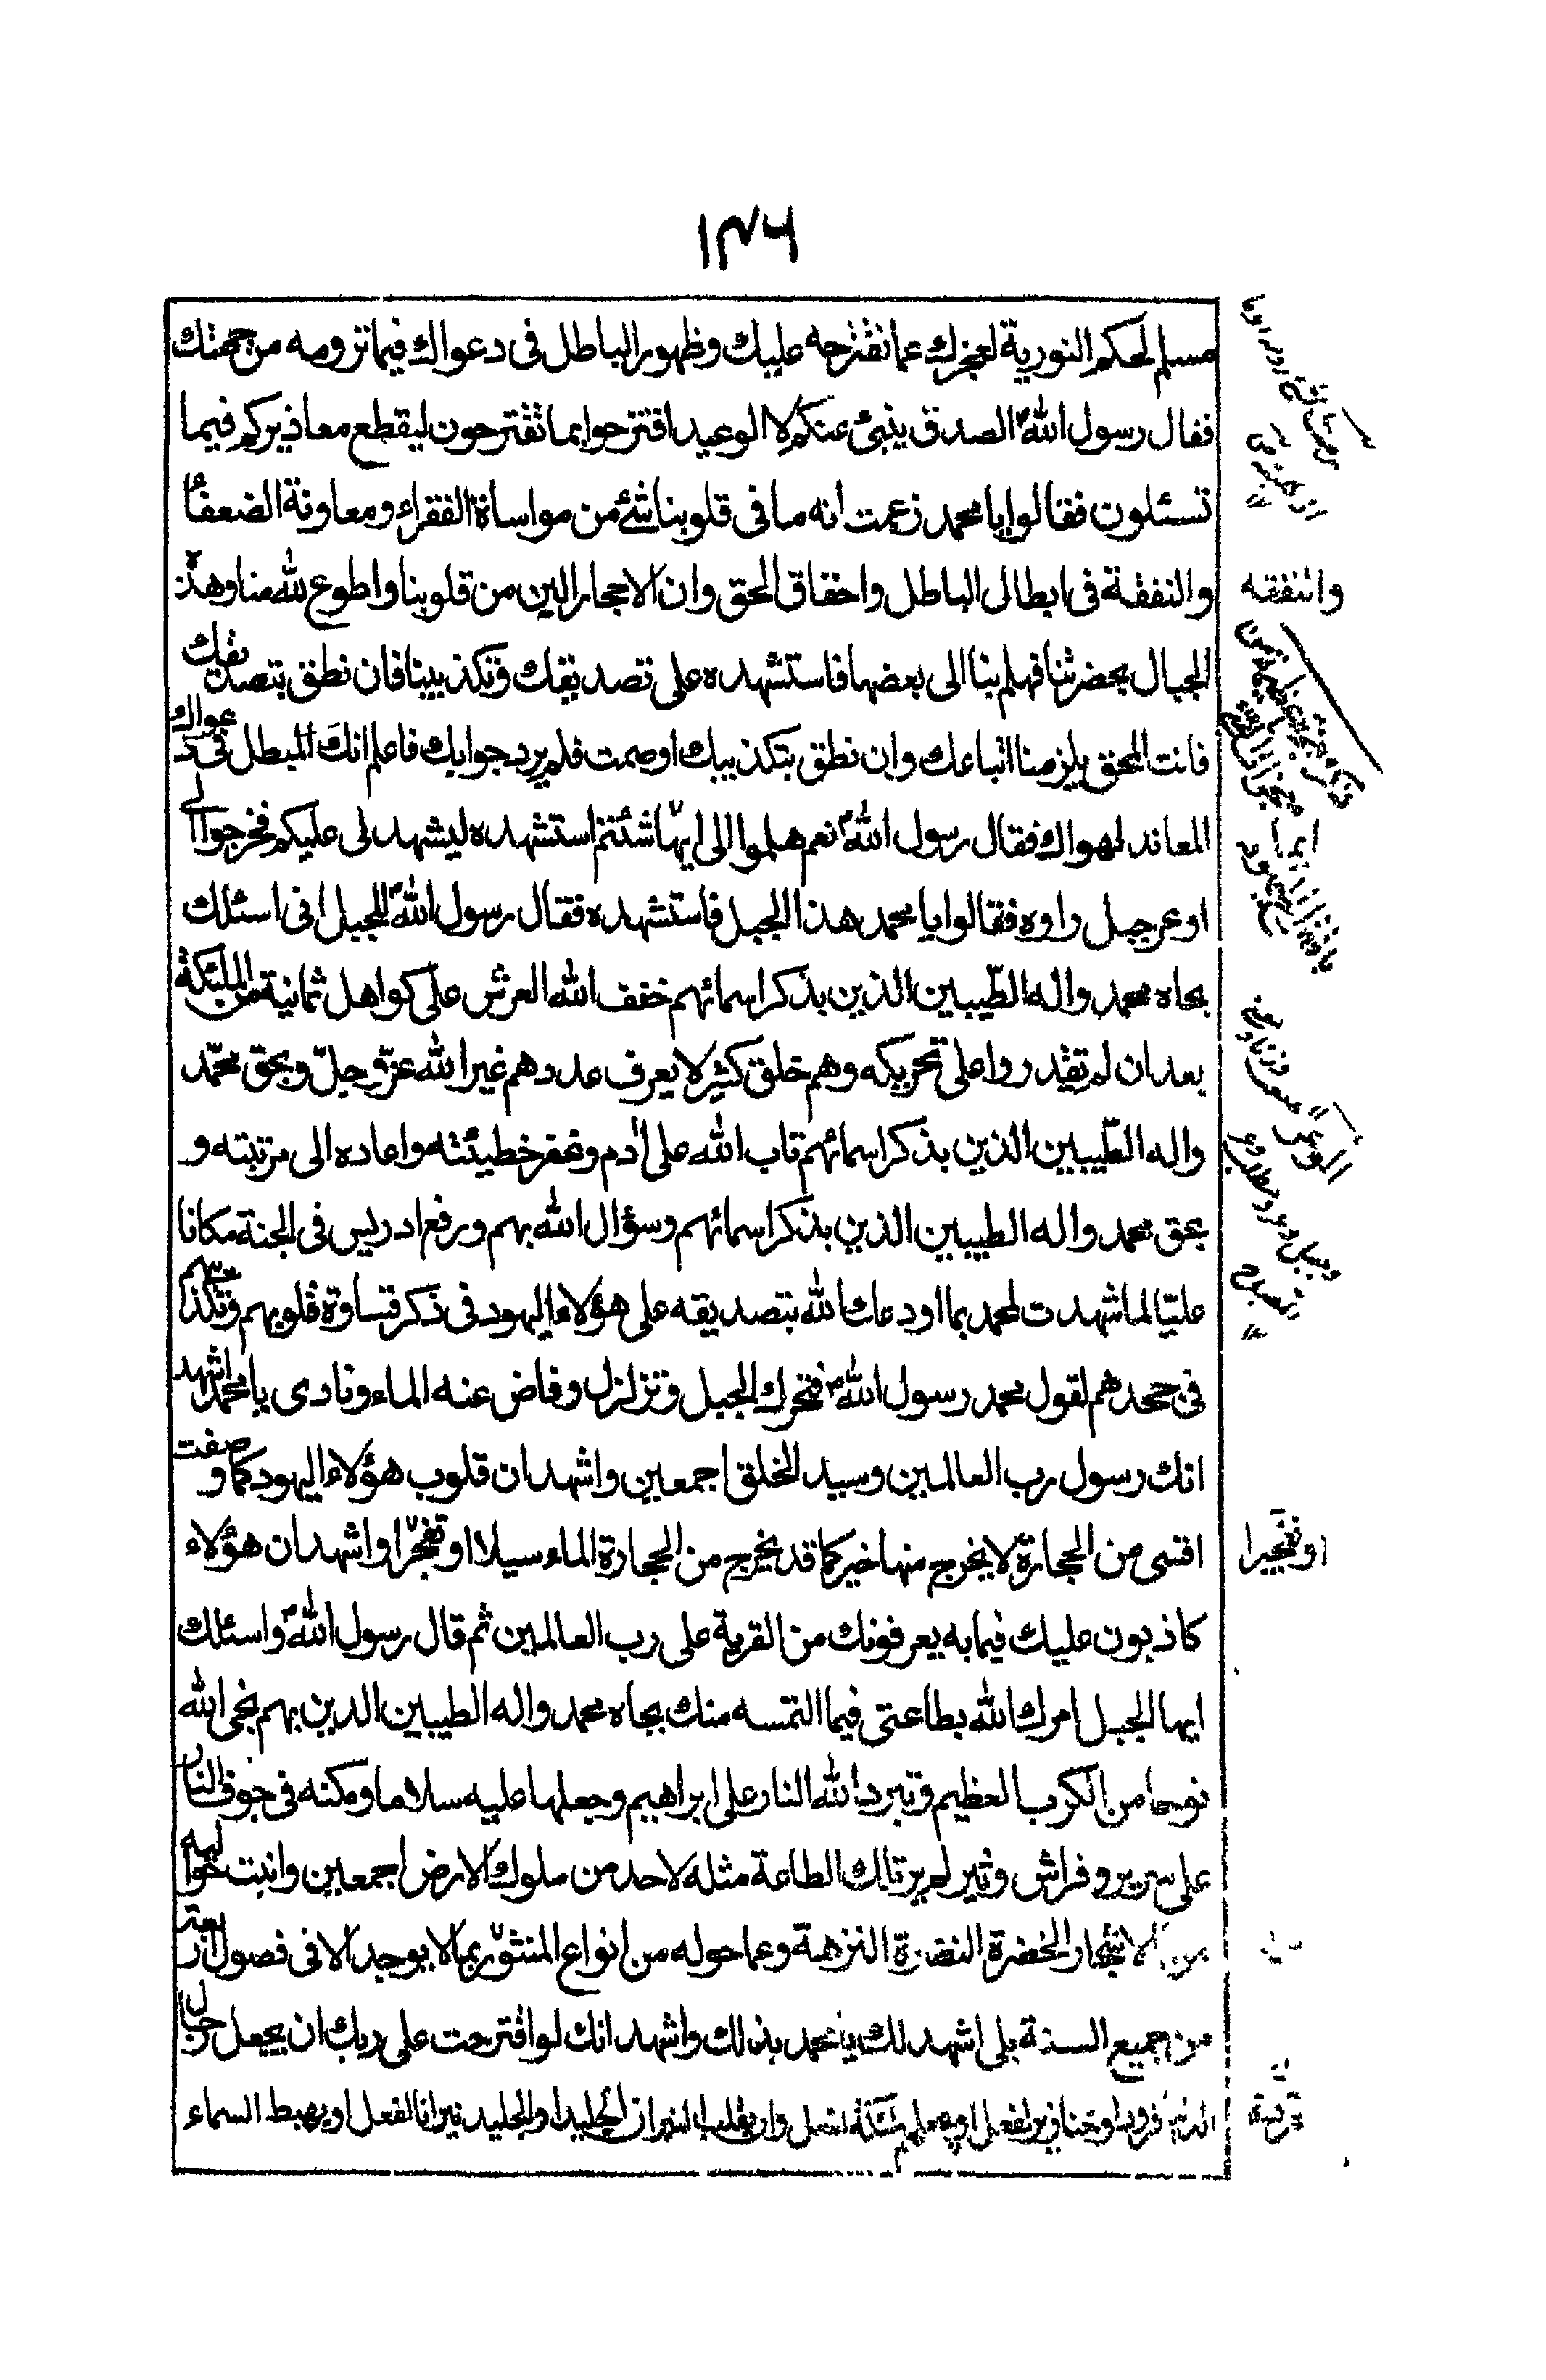 ١٣٦
مسلم لحكم النورية لعجزك عما نقترحه عليك وظهور الباطل فى دعواك فيما ترومه من جهتك
فقال رسول الله ص الصدق ينبئ عنكم لا الوعيد اقترحوا بما تقترحون ليقطع معاذيركم فيما
تسئلون فقالوا يا محمد زعمت انه ما فى قلوبنا شئ من مواساة الفقراء ومعاونة الضعفاء
والنفقة فى ابطال الباطل واحقاق الحق وان الاحجار الين من قلوبنا واطوع لله منا وهذه
والنفقه
الجبال بحضرتنا فهلم بنا الى بعضها فاستشهده على تصديقك وتكذيبنا فان نطق بتصديقك
فانت المحق يلزمنا اتباعك وان نطق بتكذيبك او صمت فلم يرد جوابك فاعلم انك المبطل فى دعواك
المعاند لهواك فقال رسول الله ص نعم هلموا الى ايها شئتم استشهده ليشهد لى عليكم فخرجوا الى
اوعر جبل راوه فقالوا يا محمد هذا الجبل فاستشهده فقال رسول الله ص للجبل انى اسئلك
بجاه محمد واله الطّيبين الذين بذكر اسمائهم خفف الله العرش على كواهل ثمانية من الملئكة
بعد ان لم تقدروا على تحريكه وهم خلق كثير لا يعرف عددهم غير الله عزّ وجلّ وبحق محمّد
واله الطّيبين الذين بذكر اسمائهم تاب الله على ادم وغفر خطيئته واعاده الى مرتبته و
بحق محمد واله الطيبين الذين بذكر اسمائهم وسؤال الله بهم ورفع ادريس فى الجنة مكانا
عليّا لما شهدت لمحمد بما اودعك الله بتصديقه على هؤلاء اليهود فى ذكر قساوة قلوبهم وتكذيبهم
فى جحدهم لقول محمد رسول الله ص فتحرك الجبل وتزلزل وفاض عنه الماء ونادى يا محمد اشهد
انك رسول رب العالمين وسيد الخلق اجمعين واشهد ان قلوب هؤلاء اليهود كما وصفت
اقسى من الحجارة لا يخرج منها خير كما قد يخرج من الحجارة الماء سيلا او تفجرا واشهد ان هؤلاء
او تفجيرا
كاذبون عليك فيما به يعرفونك من القرية على رب العالمين ثم قال رسول الله ص واسئلك
ايها الجبل امرك الله بطاعتى فيما التمسه منك بجاه محمد واله الطيبين الذين بهم نجى الله
نوحا من الكرب العظيم وتبرد الله النار على ابراهيم وجعلها عليه سلاما ومكنه فى جوف النار
على سرير وفراش وثير لم ير تلك الطاعة مثله لاحد من ملوك الارض اجمعين وانبت حواليه
من الاشجار الخضرة النضرة النزهة وعما حوله من انواع المنثور بما لا يوجد الا فى فصول اربعة
من جميع السنة بلى اشهد لك يا محمد بذلك واشهد انك لو اقترحت على ربك ان يجعل رجال
الدنيا قرودا او خنازير لفعل او يجعلهم ملئكة لفعل وان يقلب النيران الجليدا والجليد نيرانا لفعل او يهبط السماء